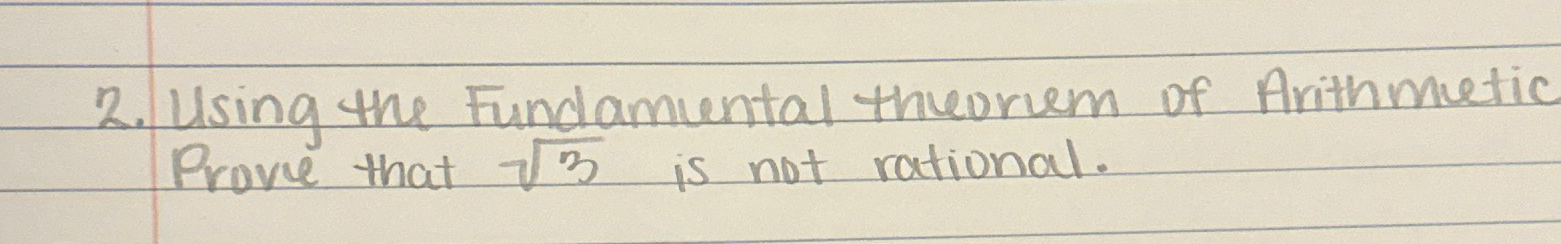 2. Using the Fundamental theorem of Arithmetic
Prove that √3 is not rational.